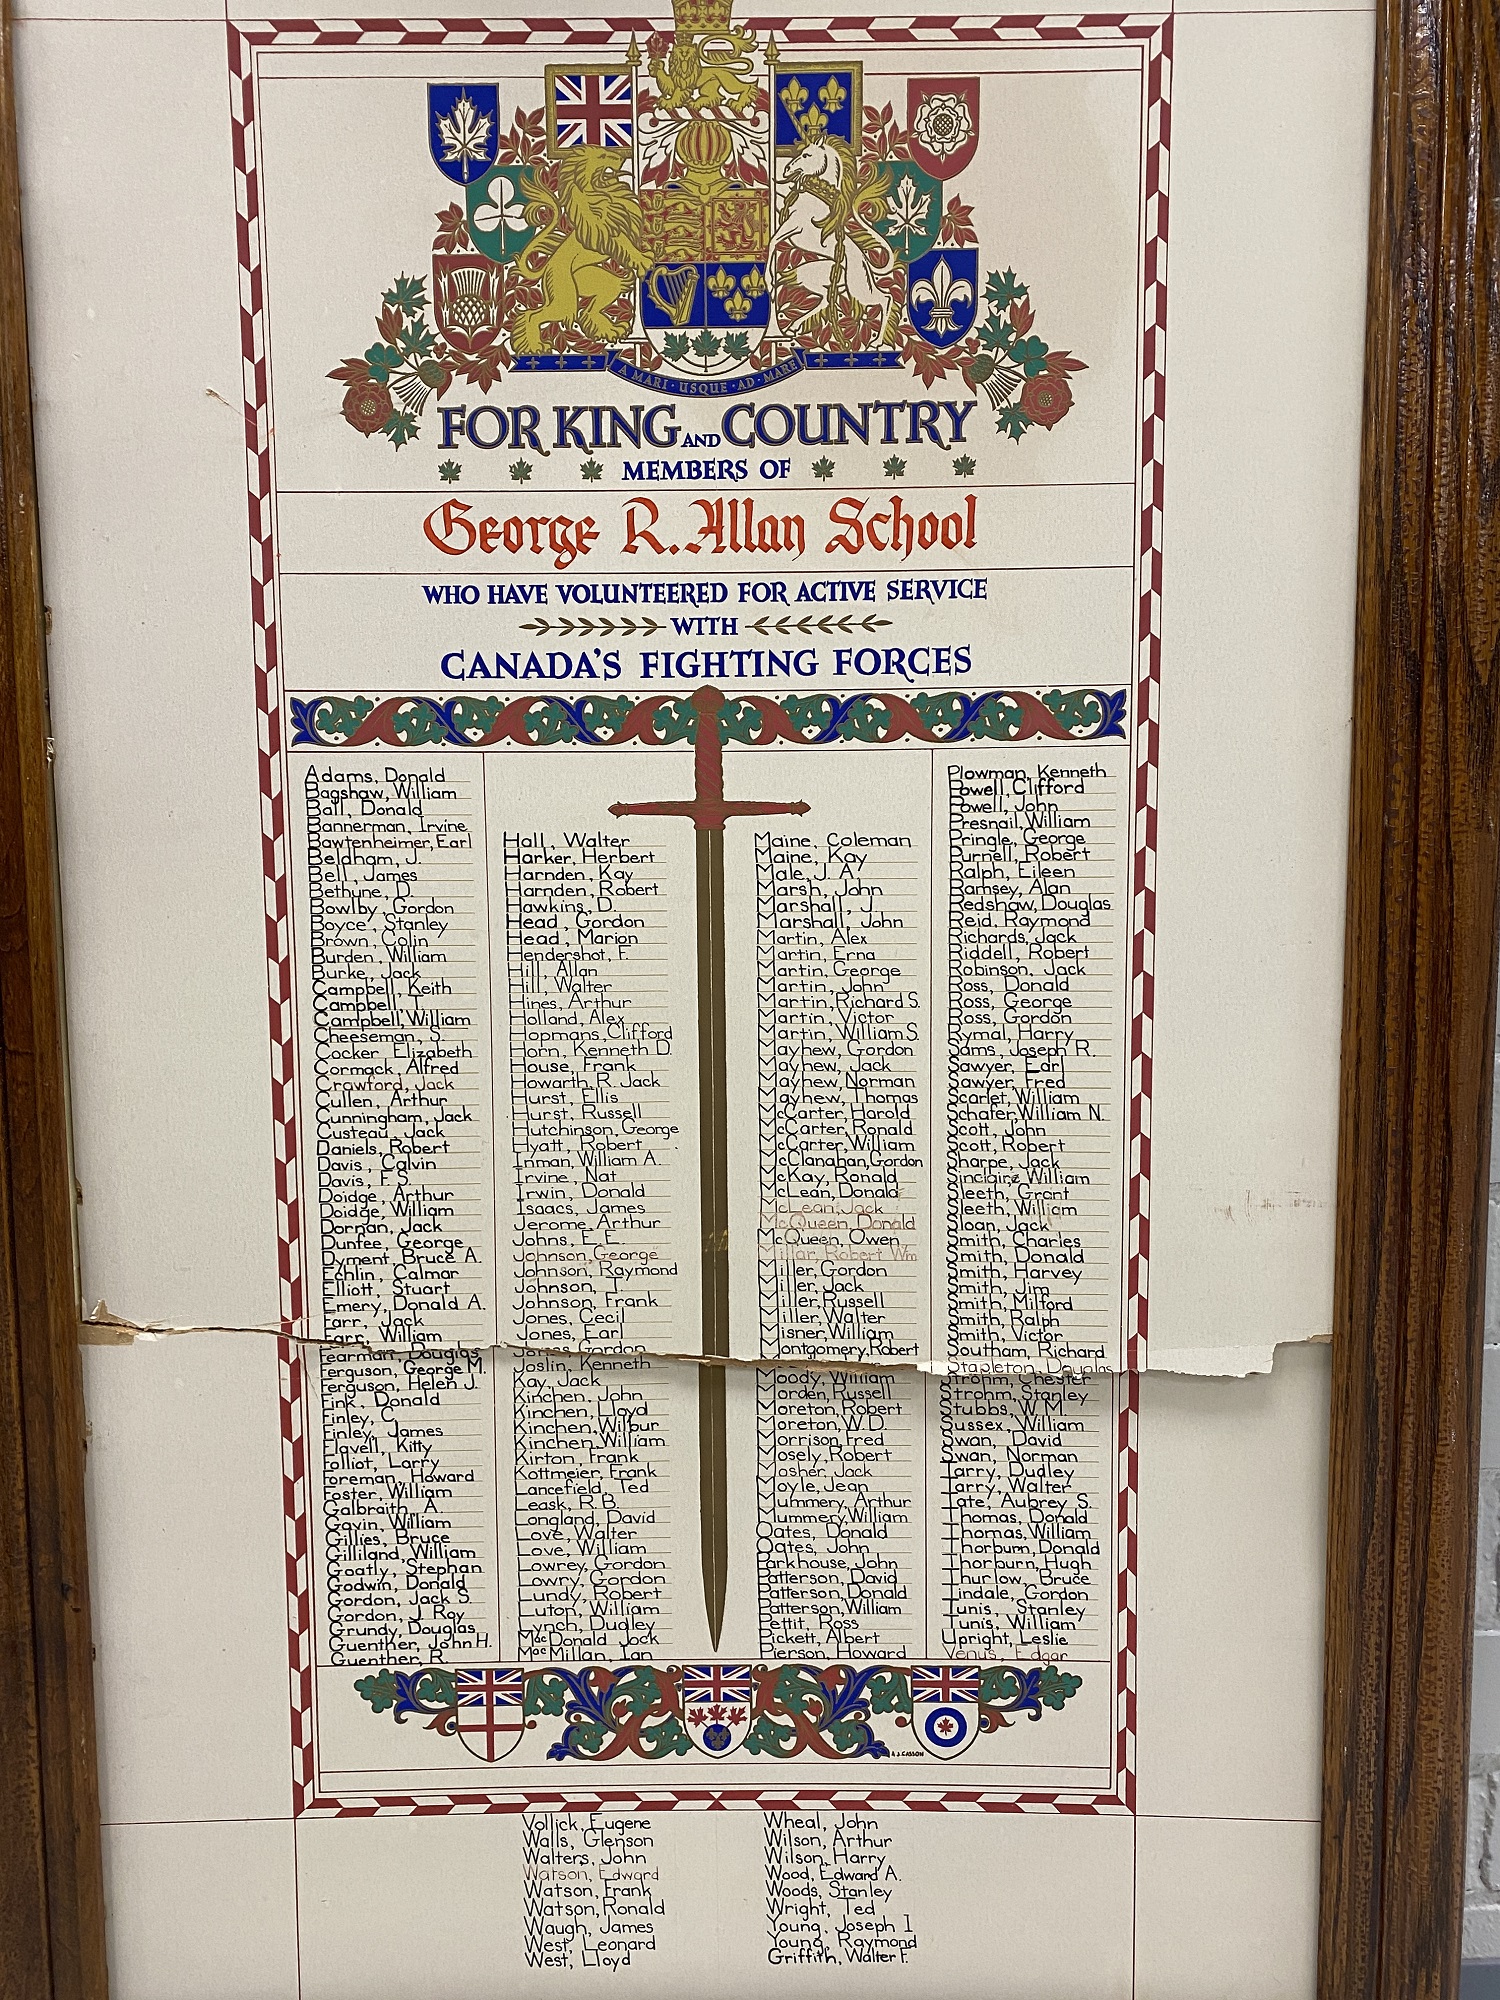 A MARI · USQUE · AD · MARE
FOR KING AND COUNTRY
MEMBERS OF
George R. Allan School
WHO HAVE VOLUNTEERED FOR ACTIVE SERVICE
WITH
CANADA'S FIGHTING FORCES
Adams, Donald
Bagshaw, William
Ball, Donald
Bannerman, Irvine
Bawtenheimer, Earl
Beldham, J.
Bell, James
Bethune, D.
Bowlby, Gordon
Boyce, Stanley
Brown, Colin
Burden, William
Burke, Jack
Campbell, Keith
Campbell, T.
Campbell, William
Cheeseman, S.
Cocker, Elizabeth
Cormack, Alfred
Crawford, Jack
Cullen, Arthur
Cunningham, Jack
Custeau, Jack
Daniels, Robert
Davis, Calvin
Davis, F. S.
Doidge, Arthur
Doidge, William
Dornan, Jack
Dunfee, George
Dyment, Bruce A.
Echlin, Calmar
Elliott, Stuart
Emery, Donald A.
Farr, Jack
Farr, William
Fearman, Douglas
Ferguson, George M.
Ferguson, Helen J.
Fink, Donald
Finley, C.
Finley, James
Flavell, Kitty
Folliot, Larry
Foreman, Howard
Foster, William
Galbraith, A.
Gavin, William
Gillies, Bruce
Gilliland, William
Goatly, Stephan
Godwin, Donald
Gordon, Jack S.
Gordon, J. Roy
Grundy, Douglas
Guenther, John H.
Guenther, R.
Hall, Walter
Harker, Herbert
Harnden, Kay
Harnden, Robert
Hawkins, D.
Head, Gordon
Head, Marion
Hendershot, F.
Hill, Allan
Hill, Walter
Hines, Arthur
Holland, Alex
Hopmans, Clifford
Horn, Kenneth D.
House, Frank
Howarth, R. Jack
Hurst, Ellis
Hurst, Russell
Hutchinson, George
Hyatt, Robert
Inman, William A.
Irvine, Nat
Irwin, Donald
Isaacs, James
Jerome, Arthur
Johns, E. E.
Johnson, George
Johnson, Raymond
Johnson, T.
Johnson, Frank
Jones, Cecil
Jones, Earl
Jones, Gordon
Joslin, Kenneth
Kay, Jack
Kinchen, John
Kinchen, Lloyd
Kinchen, Wilbur
Kinchen, William
Kirton, Frank
Kottmeier, Frank
Lancefield, Ted
Leask, R. B.
Longland, David
Love, Walter
Love, William
Lowrey, Gordon
Lowry, Gordon
Lundy, Robert
Luton, William
Lynch, Dudley
MacDonald Jock
MacMillan, Ian
Maine, Coleman
Maine, Kay
Male, J. A.
Marsh, John
Marshall, J.
Marshall, John
Martin, Alex
Martin, Erna
Martin, George
Martin, John
Martin, Richard S.
Martin, Victor
Martin, William S.
Mayhew, Gordon
Mayhew, Jack
Mayhew, Norman
Mayhew, Thomas
McCarter, Harold
McCarter, Ronald
McCarter, William
McClanahan, Gordon
McKay, Ronald
McLean, Donald
McLean, Jack
McQueen, Donald
McQueen, Owen
Millar, Robert Wm
Miller, Gordon
Miller, Jack
Miller, Russell
Miller, Walter
Misner, William
Montgomery, Robert
Moody, William
Morden, Russell
Moreton, Robert
Moreton, W. D.
Morrison, Fred
Mosely, Robert
Mosher, Jack
Moyle, Jean
Mummery, Arthur
Mummery, William
Oates, Donald
Oates, John
Parkhouse, John
Patterson, David
Patterson, Donald
Patterson, William
Pettit, Ross
Pickett, Albert
Pierson, Howard
Plowman, Kenneth
Powell, Clifford
Powell, John
Presnail, William
Pringle, George
Purnell, Robert
Ralph, Eileen
Ramsey, Alan
Redshaw, Douglas
Reid, Raymond
Richards, Jack
Riddell, Robert
Robinson, Jack
Ross, Donald
Ross, George
Ross, Gordon
Rymal, Harry
Sams, Joseph R.
Sawyer, Earl
Sawyer, Fred
Scarlet, William
Schafer, William N.
Scott, John
Scott, Robert
Sharpe, Jack
Sinclaire, William
Sleeth, Grant
Sleeth, William
Sloan, Jack
Smith, Charles
Smith, Donald
Smith, Harvey
Smith, Jim
Smith, Milford
Smith, Ralph
Smith, Victor
Southam, Richard
Stapleton, Douglas
Strohm, Chester
Strohm, Stanley
Stubbs, W. M.
Sussex, William
Swan, David
Swan, Norman
Tarry, Dudley
Tarry, Walter
Tate, Aubrey S.
Thomas, Donald
Thomas, William
Thorburn, Donald
Thorburn, Hugh
Thurlow, Bruce
Tindale, Gordon
Tunis, Stanley
Tunis, William
Upright, Leslie
Venus, Edgar
A.J. CASSON
Vollick, Eugene
Walls, Glenson
Walters, John
Watson, Edward
Watson, Frank
Watson, Ronald
Waugh, James
West, Leonard
West, Lloyd
Wheal, John
Wilson, Arthur
Wilson, Harry
Wood, Edward A.
Woods, Stanley
Wright, Ted
Young, Joseph I
Young, Raymond
Griffith, Walter F.